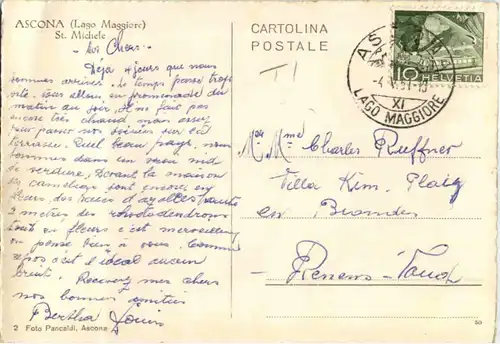 ASCONA (Lago Maggiore)
St. Michele
Mes Chers.
Déjà 4 jours que nous
sommes arrivés. Le temps passe trop
vite. Nous allons en promenade du
matin au soir, il ne fait pas
encore très chaud mais assez
pour passer nos soirées sur la
terrasse. Quel beau pays, nous
sommes dans un vrai nid
de verdure, devant la maison
les camélias sont encore en
fleurs, des haies d'azalées hautes
2 mètres des rhododendrons
tout en fleurs c'est merveilleux
on pense bien à vous. Comme
repos c'est l'idéal aucun
bruit. Recevez mes chers
nos bonnes amitiés
Bertha Louis
2 Foto Pancaldi, Ascona
CARTOLINA
POSTALE
T 1
ASCONA
XI
LAGO MAGGIORE
10 HELVETIA
Mr. Mme Charles Ruffner
Villa Kim.
en
Renens-Vaud
50